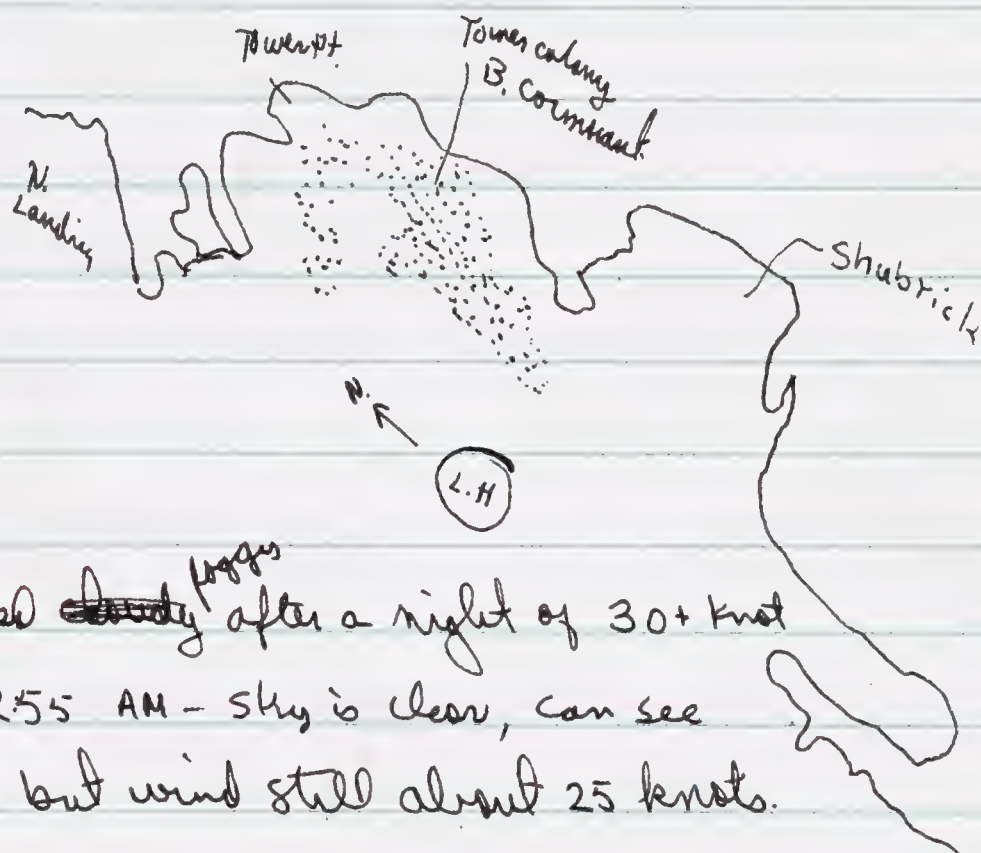 Tower pt.
Tower colony
B. Cormorant.
N.
Landing
Shubrick
N.
L.H
foggy
after a night of 30+ knot
:55 AM - Sky is clear, can see
but wind still about 25 knots.